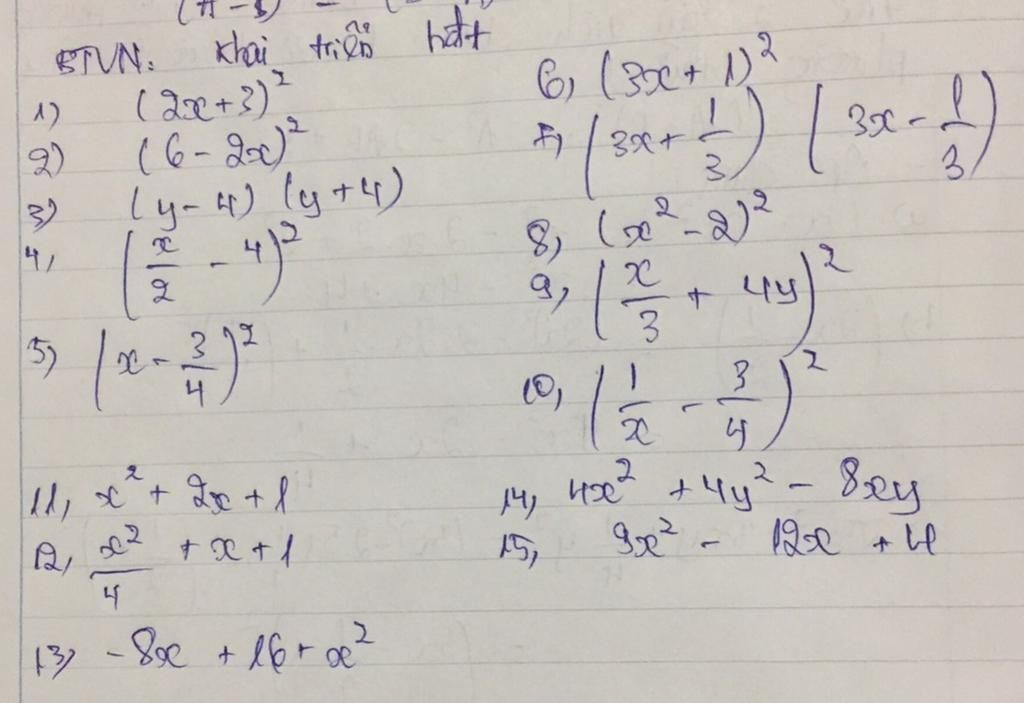 BTVN: khai triển hđt
1) (2x+3)²
2) (6-2x)²
3) (y-4) (y+4)
4, (x/2 - 4)²
5, (x - 3/4)²
6, (3x+1)²
7, (3x + 1/3) (3x - 1/3)
8, (x² - 2)²
9, (x/3 + 4y)²
10, (1/x - 3/4)²
11, x² + 2x + 1
12, x²/4 + x + 1
13, -8x + 16 + x²
14, 4x² + 4y² - 8xy
15, 9x² - 12x + 4